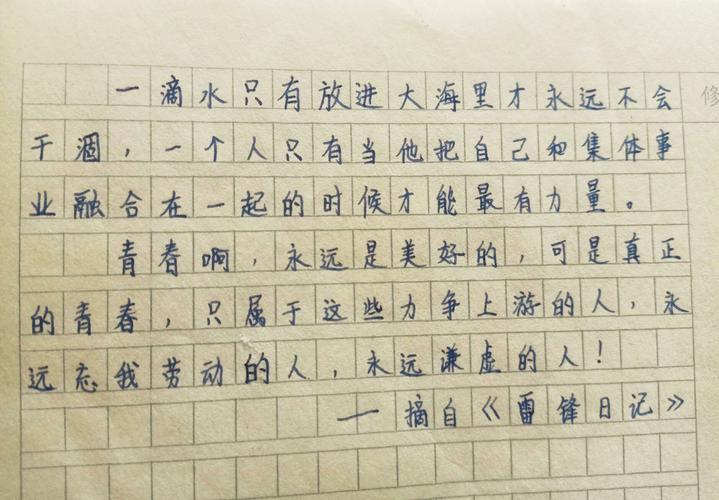 一滴水只有放进大海里才永远不会
干涸，一个人只有当他把自己和集体事
业融合在一起的时候才能最有力量。
青春啊，永远是美好的，可是真正
的青春，只属于这些力争上游的人，永
远忘我劳动的人，永远谦虚的人！
— 摘自《雷锋日记》
修